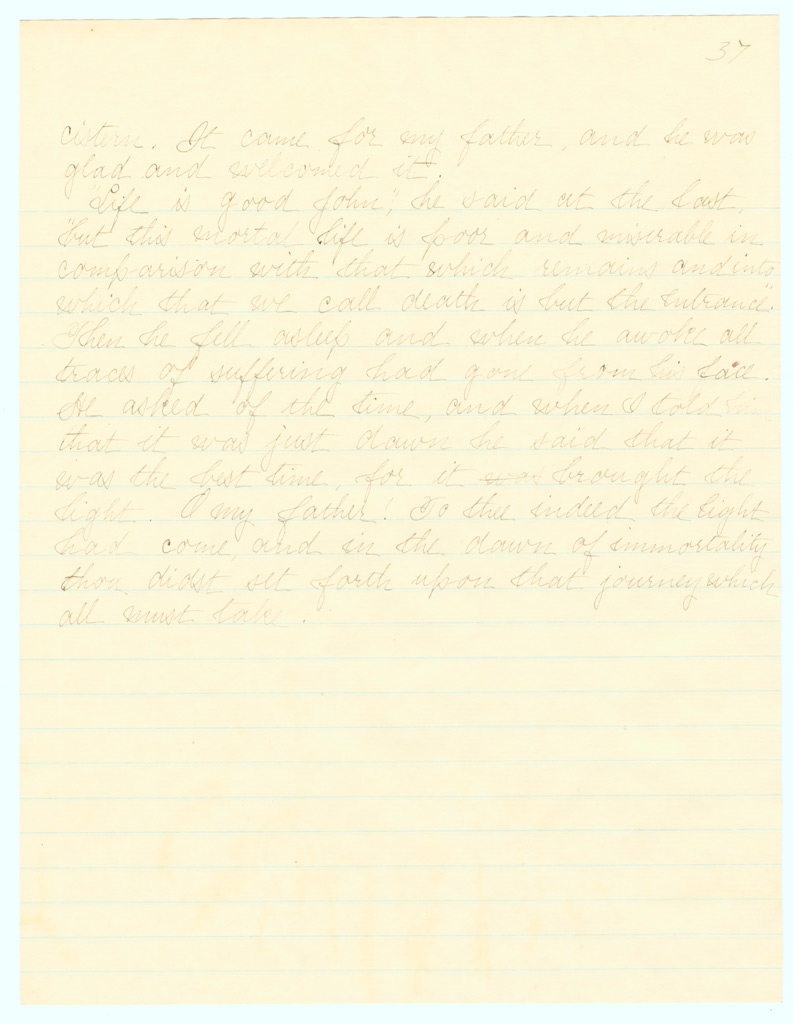 37
cistern. It came for my father, and he was
glad and welcomed it.
"Life is good John", he said at the last,
"but this mortal life is poor and miserable in
comparison with that which remains and into
which that we call death is but the entrance".
Then he fell asleep and when he awoke all
traces of suffering had gone from his face.
He asked of the time, and when I told him
that it was just dawn he said that it
was the best time, for it was brought the
light. O my father! To thee indeed the light
had come, and in the dawn of immortality
thou didst set forth upon that journey which
all must take.